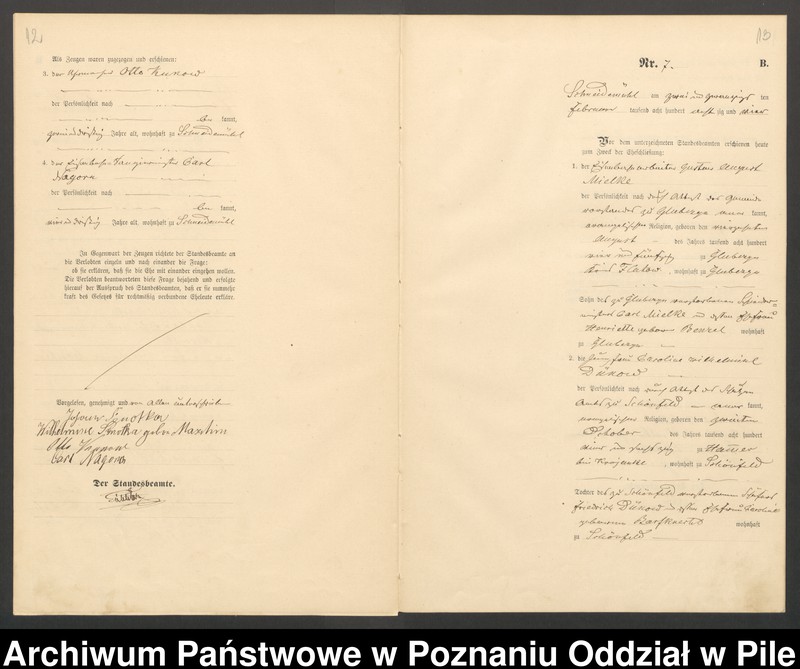 12
Als Zeugen waren zugezogen und erschienen:
3. der Otto Kukow
der Persönlichkeit nach
kannt,
zweiunddreißig Jahre alt, wohnhaft zu Schneidemühl
4. der Carl
Nagorn
der Persönlichkeit nach
kannt,
vierunddreißig Jahre alt, wohnhaft zu Schneidemühl
In Gegenwart der Zeugen richtete der Standesbeamte an
die Verlobten einzeln und nach einander die Frage:
ob sie erklären, daß sie die Ehe mit einander eingehen wollen.
Die Verlobten beantworteten diese Frage bejahend und erfolgte
hierauf der Ausspruch des Standesbeamten, daß er sie nunmehr
kraft des Gesetzes für rechtmäßig verbundene Eheleute erkläre.
Vorgelesen, genehmigt und von Allen unterschrieben
Johann
Wilhelmine geb.
Otto
Carl Nagorn
Der Standesbeamte.
13
Nr. 7. B.
Schneidemühl am zwei und zwanzigsten
Februar tausend acht hundert achtzig und vier
Vor dem unterzeichneten Standesbeamten erschienen heute
zum Zweck der Eheschließung:
1. der Eisenbahnarbeiter Gustav August
Mielke
der Persönlichkeit nach durch Attest des Gemeinde
vorstandes zu Gluberge kannt,
evangelischer Religion, geboren den vierzehnten
August des Jahres tausend acht hundert
vier und fünfzig zu Gluberge
Kreis Flatow, wohnhaft zu Gluberge
Sohn des zu Gluberge verstorbenen
Carl Mielke und dessen Ehefrau
Henriette geborne wohnhaft
zu Gluberge
2. die Jungfrau Caroline Wilhelmine
Dükow
der Persönlichkeit nach durch Attest des
Amts zu Schönfeld kannt,
evangelischer Religion, geboren den zweiten
October des Jahres tausend acht hundert
vier und sechszig zu Hammer
bei , wohnhaft zu Schönfeld
Tochter des zu Schönfeld verstorbenen
Friedrich Dükow und dessen Ehefrau Caroline
geborenen wohnhaft
zu Schönfeld
Archiwum Państwowe w Poznaniu Oddział w Pile